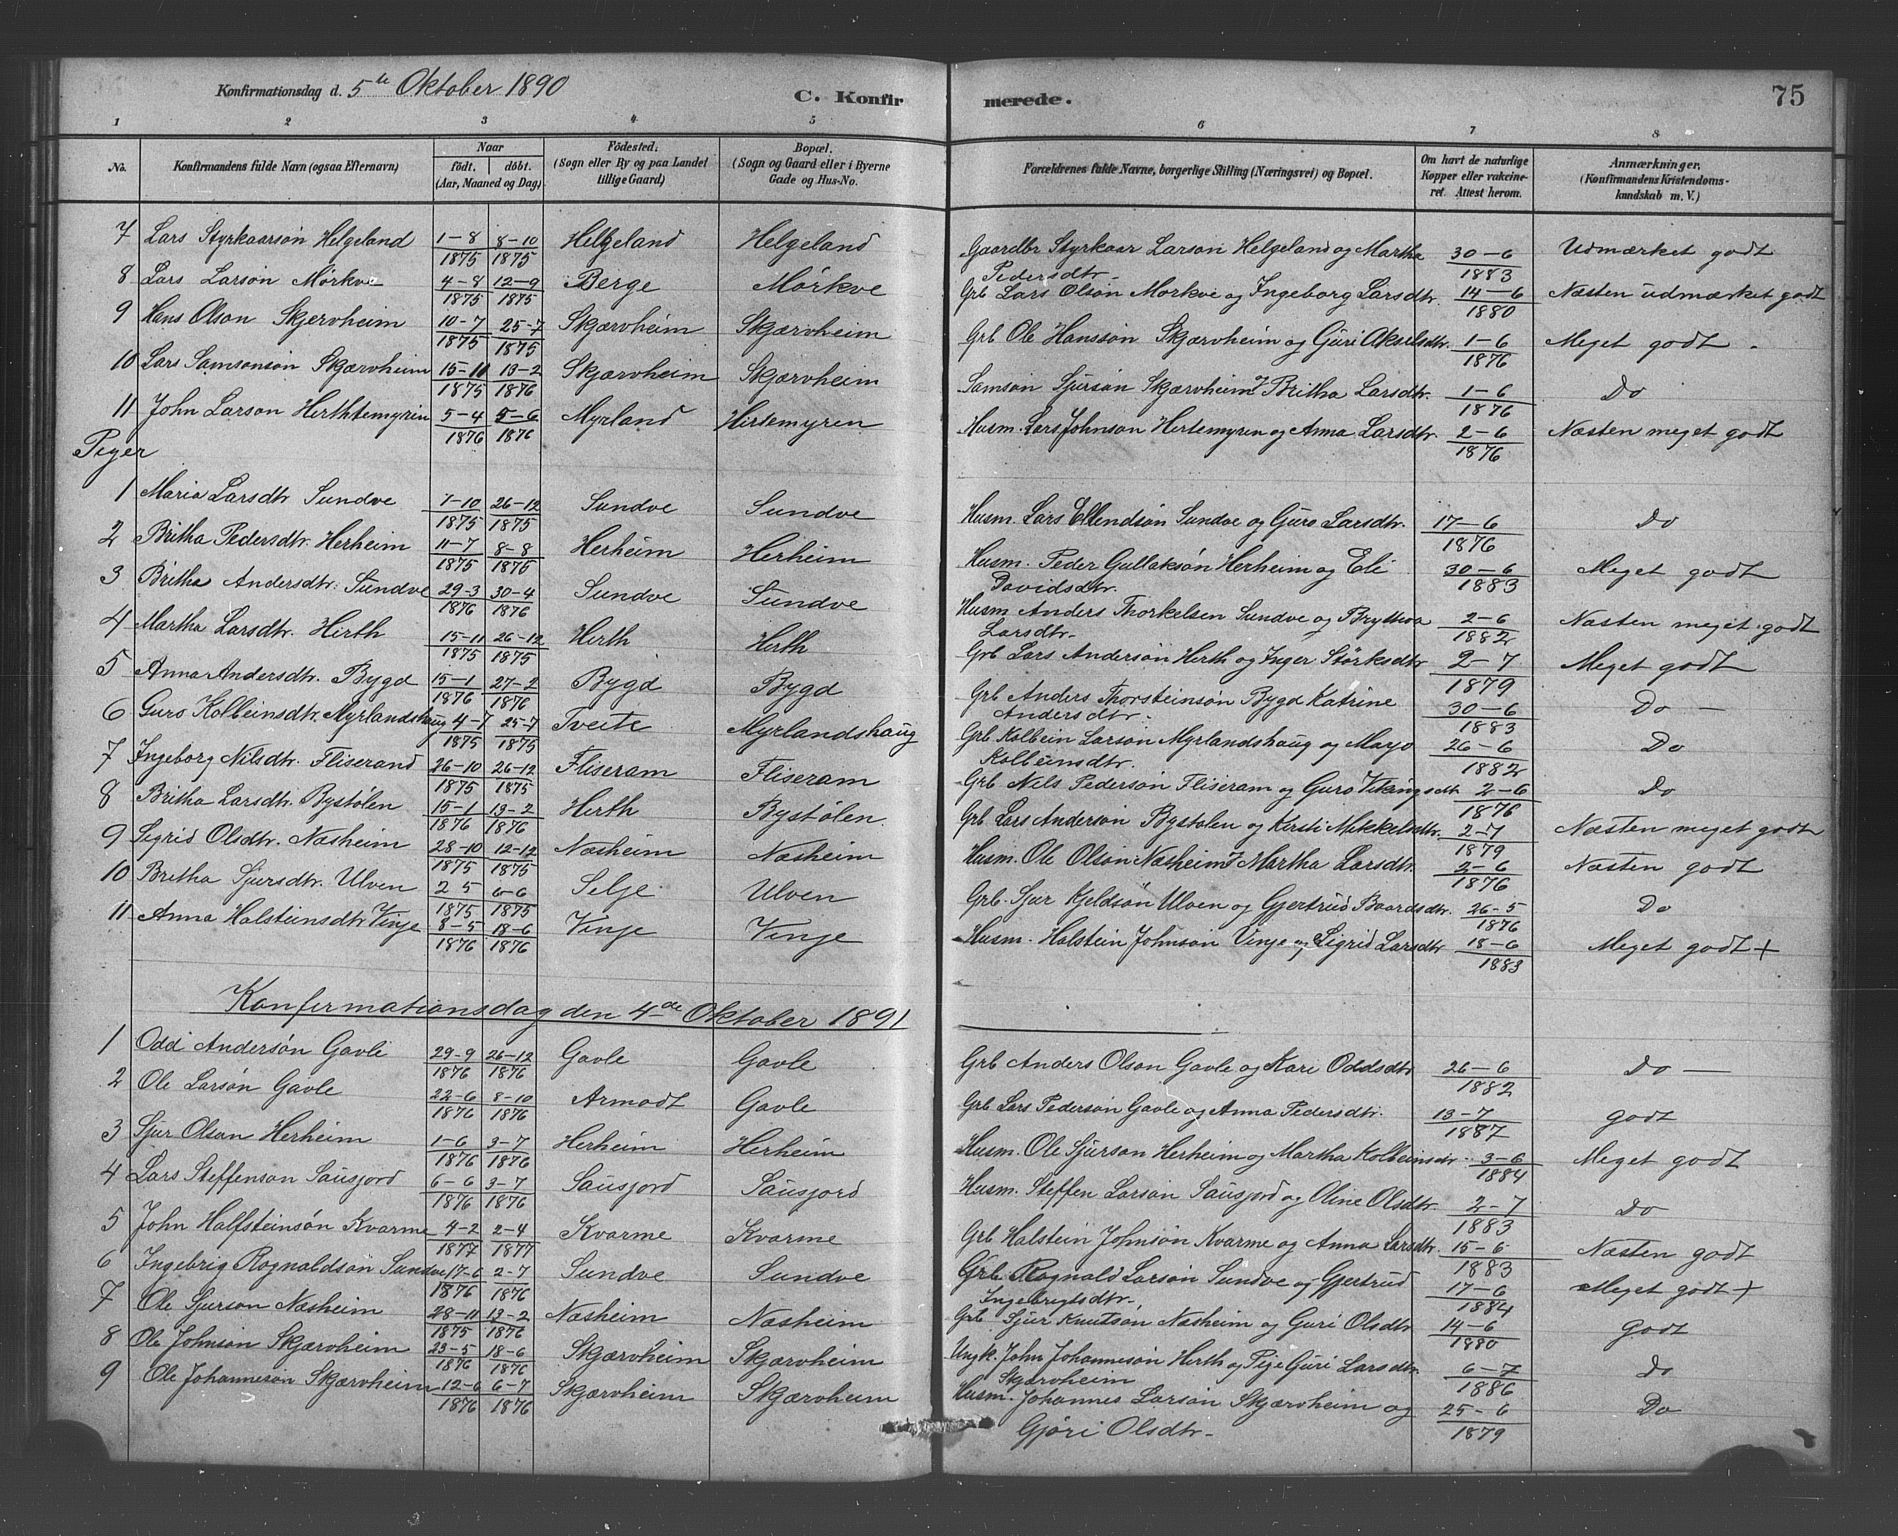 Konfirmationsdag d. 5te Oktober 1890
C. Konfirmerede.
75
1 2 3 4 5 6 7 8
No. Konfirmandens fulde Navn (ogsaa Efternavn) Naar født. døbt. (Aar, Maaned og Dag) Fødested: (Sogn eller By og paa Landet tillige Gaard) Bopæl. (Sogn og Gaard eller i Byerne Gade og Hus-No. Forældrenes fulde Navne, borgerlige Stilling (Næringsvei) og Bopæl. Om havt de naturlige Kopper eller vakcineret. Attest herom. Anmærkninger, (Konfirmandens Kristendomskundskab m. V.)
7 Lars Styrkaarsøn Helgeland 1-8 1875 8-10 1875 Helgeland Helgeland Gaardbr Styrkaar Larson Helgeland og Martha Pedersdtr. 30-6 1883 Udmærket godt
8 Lars Larson Mørkve 4-8 1875 12-9 1875 Berge Mørkve Grb Lars Olson Mørkve og Ingeborg Larsdtr. 14-6 1880 Næsten udmærket godt
9 Hans Olson Skjervheim 10-7 1875 25-7 1875 Skjærvheim Skjærvheim Grb Ole Hansson Skjærvheim og Guri Akselsdtr. 1-6 1876 Meget godt
10 Lars Samsonsøn Skjærvheim 15-11 1875 13-2 1876 Skjærvheim Skjærvheim Samson Sjursøn Skjærvheim & Britha Larsdtr. 1-6 1876 Do
11 John Larson Herthtemyren 5-4 1876 5-6 1876 Myrland Hirtemyren Husm. Lars Johnson Hertemyren og Anna Larsdtr. 2-6 1876 Næsten meget godt
Piger
1 Maria Larsdtr Sundve 7-10 1875 26-12 1875 Sundve Sundve Husm. Lars Ellendsøn Sundve og Guro Larsdtr. 17-6 1876 Do
2 Britha Pedersdtr. Herheim 11-7 1875 8-8 1875 Herheim Herheim Husm. Peder Gullaksøn Herheim og Eli Davidsdtr. 30-6 1883 Meget godt
3 Britha Andersdtr. Sundve 29-3 1876 30-4 1876 Sundve Sundve Husm Anders Thorkelsen Sundve og Brytteva Larsdtr. 2-6 1882 Næsten meget godt
4 Martha Larsdtr. Hirth 15-11 1875 26-12 1875 Hirth Herth Grb Lars Anderson Herth og Inger Størksdtr 2-7 1879 Meget godt
5 Anna Andersdtr. Bygd 15-1 1876 27-2 1876 Bygd Bygd Grb Anders Thorsteinsøn Bygd Katrine Andersdtr. 30-6 1883 Do -
6 Guro Kolbeinsdtr. Myrlandshaug 4-7 1875 25-7 1875 Tveite Myrlandshaug Grb Kolbein Larson Myrlandshaug og Kolbeinsdtr. 26-6 1882 Do
7 Ingeborg Nilsdtr. Fliserand 26-10 1875 26-12 1875 Fliseram Fliseram Grb Nils Pederson Fliseram og Guro Vikingsdt 2-6 1876 Do
8 Britha Larsdtr. Bystølen 15-1 1876 13-2 1876 Herth Bystølen Grb Lars Anderson Bystølen og Kirsti Mikkelsdtr. 2-7 1879 Næsten meget godt
9 Sigrid Olsdtr. Næsheim 28-10 1875 12-12 1875 Næsheim Næsheim Husm. Ole Olson Næsheim & Martha Larsdtr. 2-6 1876 Næsten godt
10 Britha Sjursdtr. Ulven 2 5 1875 6-6 1875 Selje Ulven Grb. Sjur Kjeldsøn Ulven og Gjertrud Baardsdtr. 26-5 1876 Do
11 Anna Halsteinsdtr Vinje 8-5 1876 18-6 1876 Vinje Vinje Husm. Halstein Johnson Vinje og Sigrid Larsdtr 18-6 1883 Meget godt +
Konfirmationsdag den 4de Oktober 1891
1 Odd Andersøn Gavle 29-9 1876 26-12 1876 Gavle Gavle Grb Anders Olson Gavle og Kari Oddsdtr 26-6 1882 Do -
2 Ole Larsøn Gavle 22-6 1876 8-10 1876 Armodt Gavle Grb Lars Pederson Gavle og Anna Pedersdtr. 13-7 1887 godt
3 Sjur Olson Herheim 1-6 1876 3-7 1876 Herheim Herheim Husm. Ole Sjurson Herheim og Martha Kolbeinsdr. 3-6 1884 Meget godt
4 Lars Steffenson Sausjord 6-6 1876 3-7 1876 Sausjord Sausjord Husm. Steffen Larson Sausjord og Oline Olsdtr. 2-7 1883 Do
5 John Halfsteinsøn Kvarme 4-2 1877 2-4 1877 Kvarme Kvarme Grb Halstein Johnsøn Kvarme og Anna Larsdtr. 15-6 1883 Næsten godt
6 Ingebrig Rognaldson Sundve 17-6 1876 2-7 1876 Sundve Sundve Grb Rognald Larsøn Sundve og Gjertrud Ingebrigtsdtr. 17-6 1884 Meget godt +
7 Ole Sjurson Næsheim 28-11 1875 13-2 1876 Næsheim Næsheim Grb Sjur Knutsøn Næsheim og Guri Olsdtr 14-6 1880 Godt
8 Ole Johnson Skjærvheim 23-5 1876 18-6 1876 Skjærvheim Skjærvheim Ungk. John Johannesøn Herth og Pige Guri Larsdtr. Skjærvheim 6-7 1886 Do
9 Ole Johanneson Skjærvheim 12-6 1876 6-7 1876 Skjærvheim Skjærvheim Husm. Johannes Larson Skjærvheim og Gjøri Olsdtr. 25-6 1879 Do